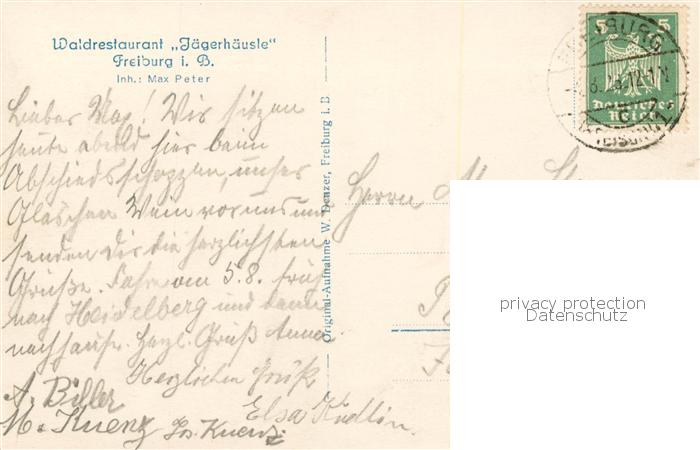 Waldrestaurant „Jägerhäusle“
Freiburg i. B.
Inh.: Max Peter
Lieber Max! Wir sitzen
heute abend hier beim
Abschiedsschoppen, unser
Gläschen Wein vor uns und
senden Dir die herzlichsten
Grüße. Fahre am 5.8. früh
nach Heidelberg und dann
nachhause. Herzl. Gruß Anna.
Herzlichen Gruß
A. Biller
M. Kuenz Jos. Kuenz
Elsa Küdlin.
Original-Aufnahme W. Denzer, Freiburg i. B
Herrn
5 5
Deutsches
Reich
privacy protection
Datenschutz